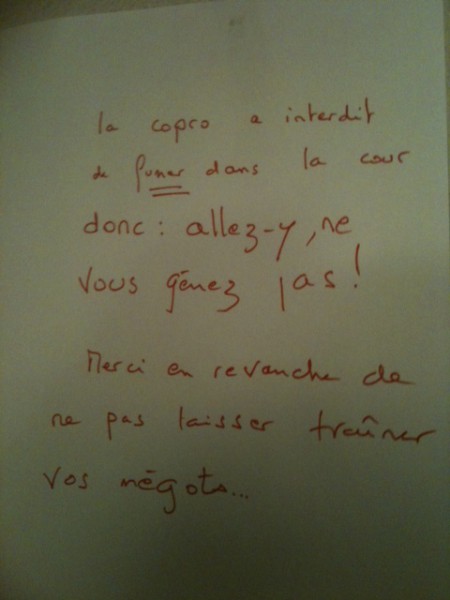 la copro a interdit
de fumer dans la cour
donc : allez-y, ne
vous gênez pas !
Merci en revanche de
ne pas laisser traîner
vos mégots...